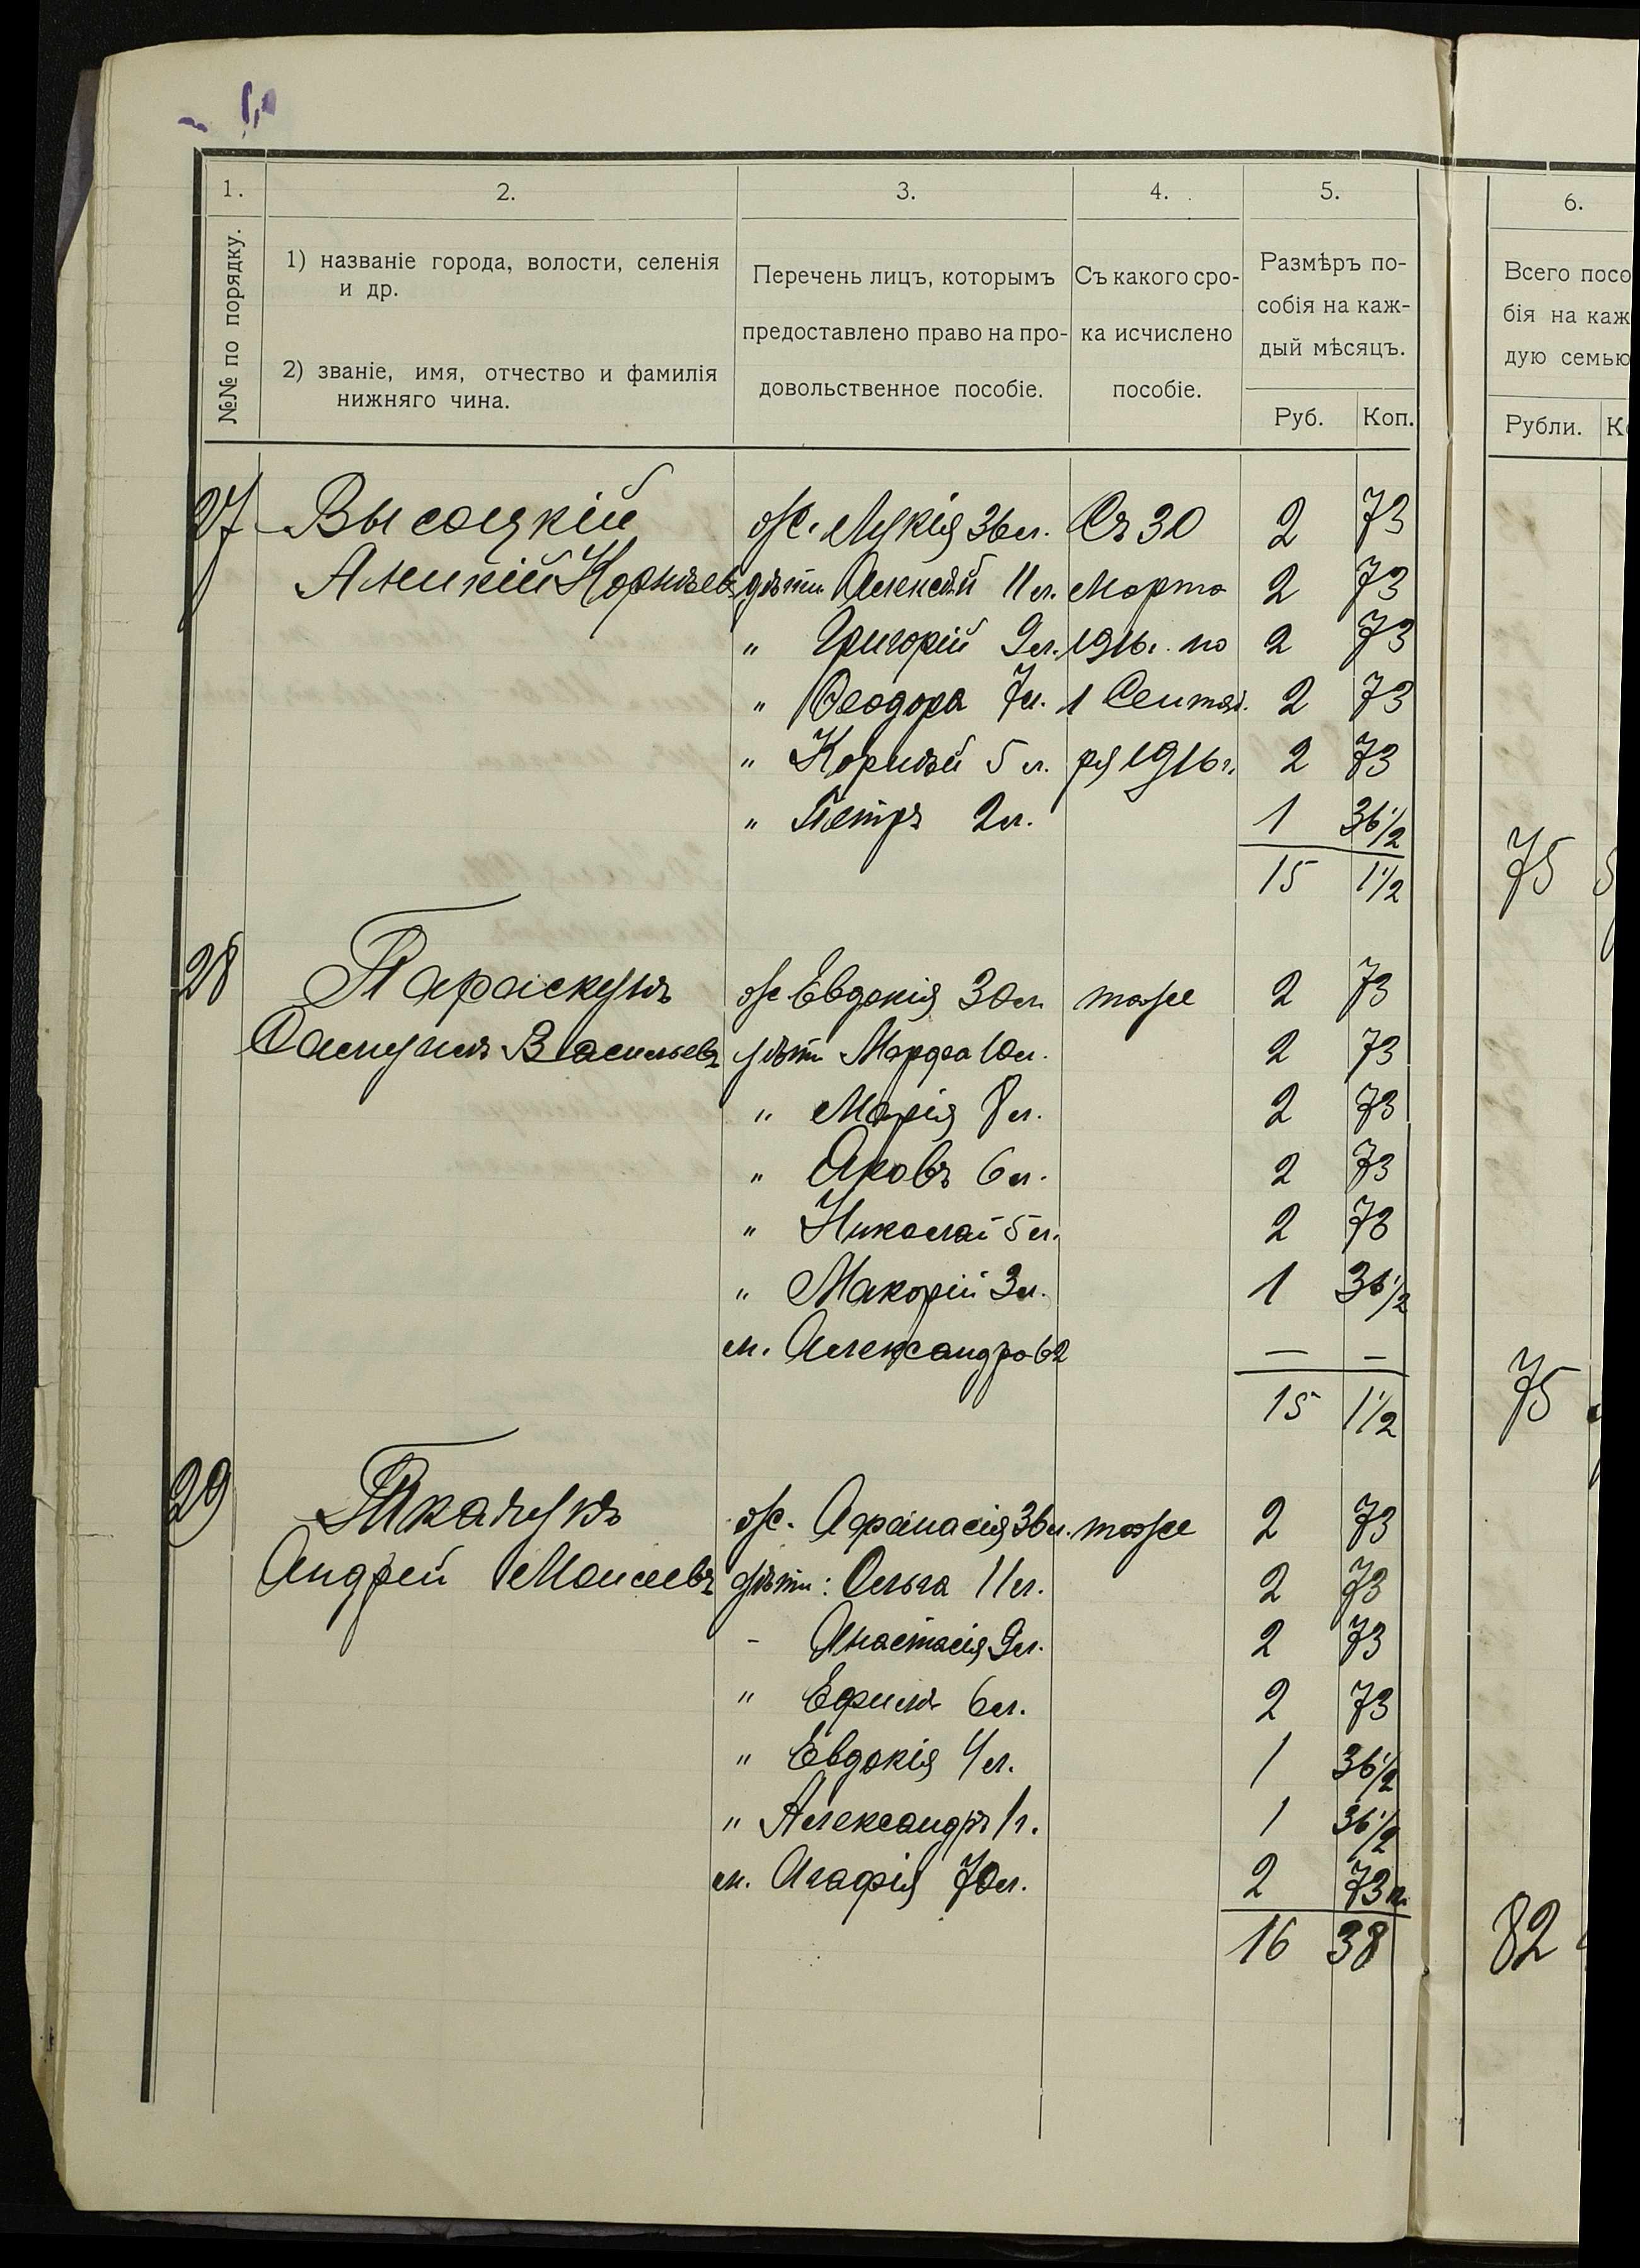 1. 2. 3. 4. 5. 6.
№№ по порядку.
1) названіе города, волости, селенія
и др.
2) званіе, имя, отчество и фамилія
нижняго чина.
Перечень лицъ, которымъ
предоставлено право на про-
довольственное пособіе.
Съ какого сро-
ка исчислено
пособіе.
Размѣръ по-
собія на каж-
дый мѣсяцъ.
Руб. Коп.
Всего посо
бія на каж
дую семью
Рубли. К
27 Высоцкій ж. Лукія 36 л. Съ 30 2 73
Аникій Корнѣевъ дѣти Алексѣй 11 л. Марта 2 73
" Григорій 9 л. 1916 г. по 2 73
" Ѳеодора 7 л. 1 Сентяб. 2 73
" Корнѣй 5 л. ря 1916 г. 2 73
" Петръ 2 л. 1 36 1/2
15 1 1/2 75
28 Тараскунъ ж Евдокія 30 л. тоже 2 73
Самуилъ Васильевъ дѣти Марфа 10 л. 2 73
" Марія 8 л. 2 73
" Яковъ 6 л. 2 73
" Николай 5 л. 2 73
" Макорій 3 л. 1 36 1/2
м. Александра 62 — —
15 1 1/2 75
29 Ткачукъ ж. Афанасія 36 л. тоже 2 73
Андрей Моисеевъ дѣти: Ольга 11 л. 2 73
- Анастасія 9 л. 2 73
" Ефимъ 6 л. 2 73
" Евдокія 4 л. 1 36 1/2
" Александръ 1 г. 1 36 1/2
м. Агафія 70 л. 2 73 к.
16 38 82